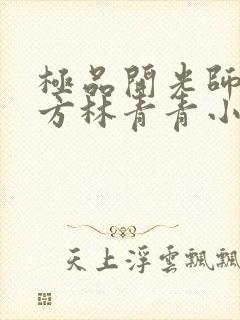 極品開光師
方林青青小
天上浮雲飄飄